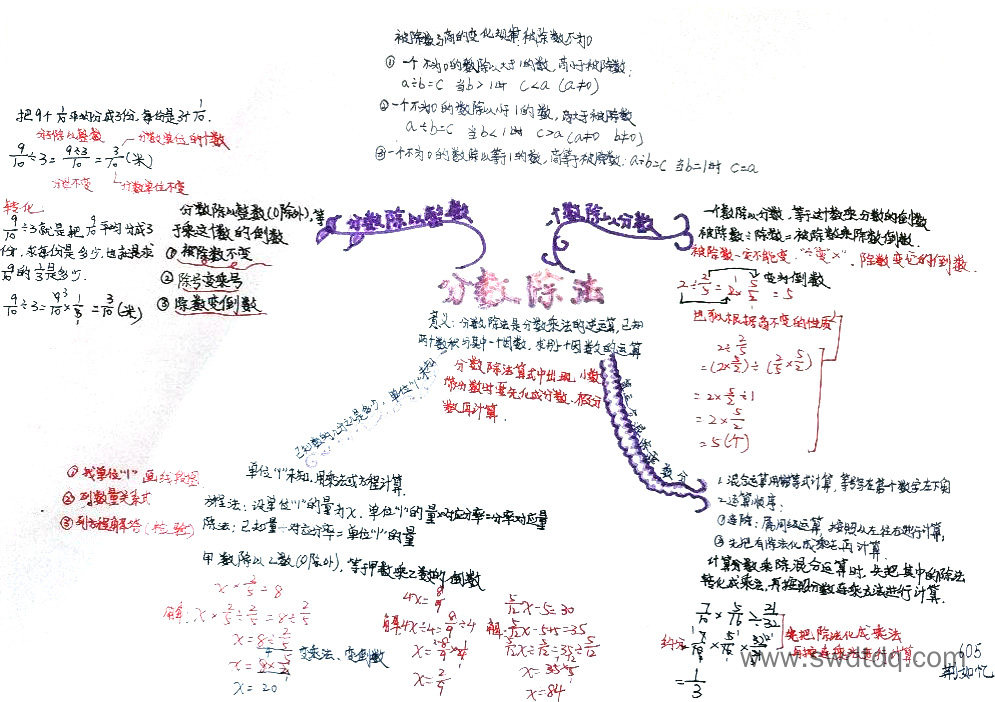 被除数与商的变化规律:被除数不为0
① 一个不为0的数除以大于1的数,商小于被除数:
a÷b=c 当b>1时 c<a (a≠0)
②一个不为0的数除以小于1的数,商大于被除数
a÷b=c 当b<1时 c>a (a≠0 b≠0)
③一个不为0的数除以等于1的数,商等于被除数:a÷b=c 当b=1时 c=a
把9个1/10平均分成3份,每份是3个1/10.
分子除以整数
分数单位的个数
9/10÷3=9÷3/10=3/10(米)
分母不变
分数单位不变
转化
9/10÷3就是把9/10平均分成3
份,求每份是多少,也就是求
9/10的1/3是多少.
9/10÷3=9/10×1/3=3/10(米)
分数除以整数(0除外),等
于乘这个数的倒数
①被除数不变
②除号变乘号
③除数变倒数
分数除以整数
一个数除以分数
分数除法
意义:分数除法是分数乘法的逆运算,已知
两个数积与其中一个因数,求另一个因数的运算
分数除法算式中出现,小数
带分数时要先化成分数、假分
数再计算.
一个数除以分数,等于这个数乘分数的倒数
被除数÷除数=被除数乘除数倒数.
被除数一定不能变,“÷”变“×”,除数变它的倒数.
2÷2/5=2/1×5/2=5
变为倒数
也可以根据商不变的性质
2÷2/5
=(2×5/2)÷(2/5×5/2)
=2×5/2÷1
=2×5/2
=5(个)
单位“1”未知
①找单位“1” 画线段图
②列数量关系式
③列方程解答(检验)
单位“1”未知,用乘法或方程计算.
方程法:设单位“1”的量为x,单位“1”的量×对应分率=分率对应量
除法:已知量÷对应分率=单位“1”的量
甲数除以乙数(0除外),等于甲数乘乙数的倒数
x×2/5=8
解:x×2/5÷2/5=8÷2/5
x=8÷2/5
变乘法、变倒数
x=8×5/2
x=20
4x=8/9
解:4x÷4=8/9÷4
x=8/9×1/4
x=2/9
5/12x-5=30
解:5/12x-5+5=35
5/12x÷5/12=35÷5/12
x=35×12/5
x=84
1.混合运算用脱等式计算,等号写在第一个数字左下角
2.运算顺序:
①连除:属同级运算,按照从左往右进行计算,
②先把有除法化成乘法再计算.
计算分数乘除混合运算时,先把其中的除法
转化成乘法,再按照分数连乘方法进行计算.
7/10×5/16÷21/32
约分
=7/10×5/16×32/21
先把除法化成乘法
再按连乘法进行计算
=1/3
605
www.swdtdq.com